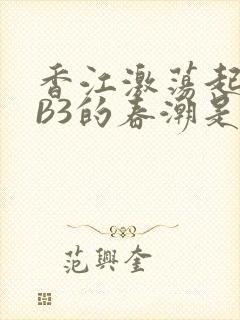 香江激荡起
B3的春潮是
范興奎